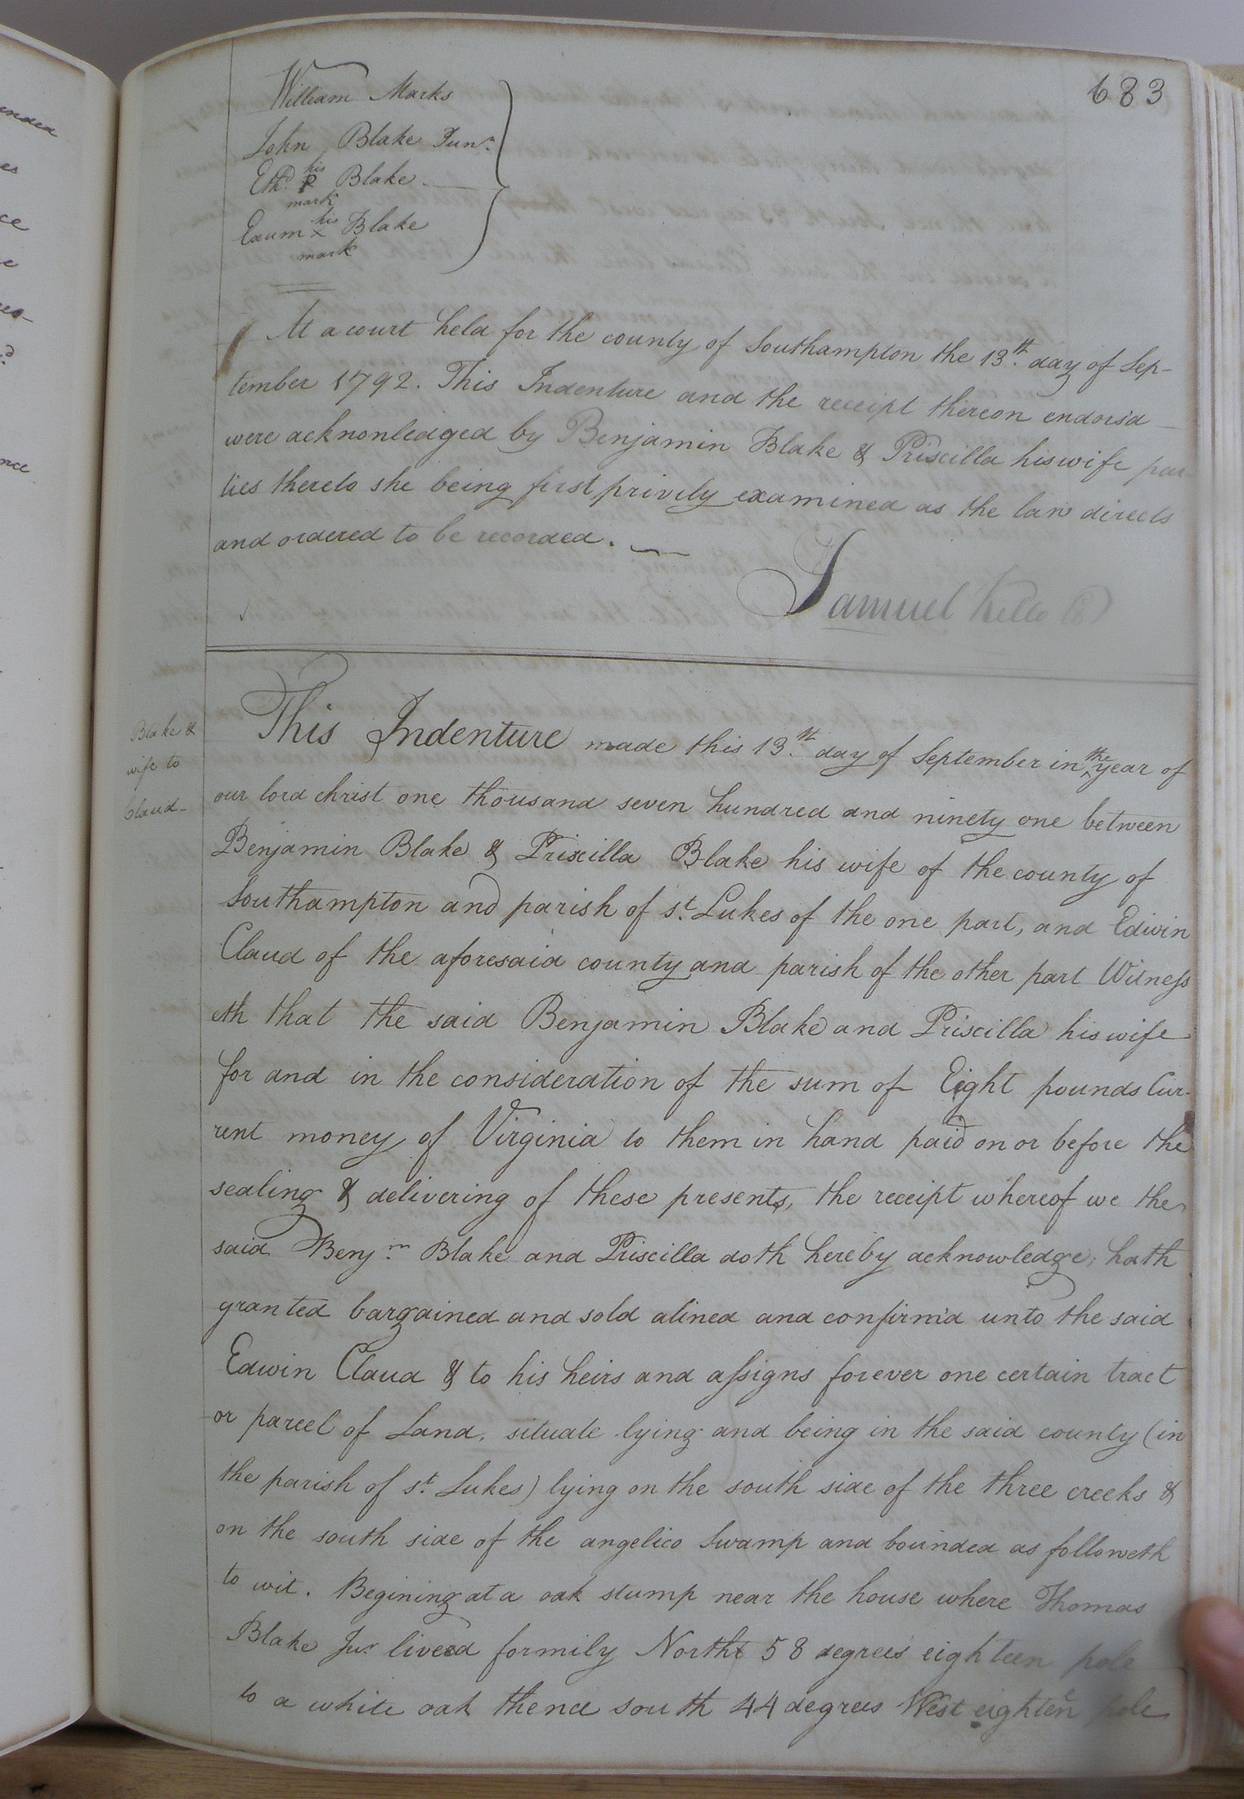 683
William Marks
John Blake Junr.
Ethd. his P Blake
mark
Exum his x Blake
mark
At a court held for the county of Southampton the 13th. day of Sep-
tember 1792. This Indenture and the receipt thereon endors'd
were acknowledged by Benjamin Blake & Priscilla his wife par
ties thereto she being first privily examined as the law directs
and ordered to be recorded.
Samuel Kello
Blake &
wife to
Claud
This Indenture made this 13th. day of September in the year of
our lord christ one thousand seven hundred and ninety one between
Benjamin Blake & Priscilla Blake his wife of the county of
Southampton and parish of st. Lukes of the one part, and Edwin
Claud of the aforesaid county and parish of the other part Witness
eth that the said Benjamin Blake and Priscilla his wife
for and in the consideration of the sum of Eight pounds Cur-
rent money of Virginia to them in hand paid on or before the
sealing & delivering of these presents, the receipt whereof we the
said Benjm Blake and Priscilla doth hereby acknowledge, hath
granted bargained and sold alined and confirm'd unto the said
Edwin Claud & to his heirs and assigns forever one certain tract
or parcel of Land, situate lying and being in the said county (in
the parish of st. Lukes) lying on the south side of the three creeks &
on the south side of the angelico Swamp and bounded as followeth
to wit. Begining at a oak stump near the house where Thomas
Blake Jur. liveed formily North 58 degrees eighteen pole
to a white oak thence south 44 degrees West eighteen pole